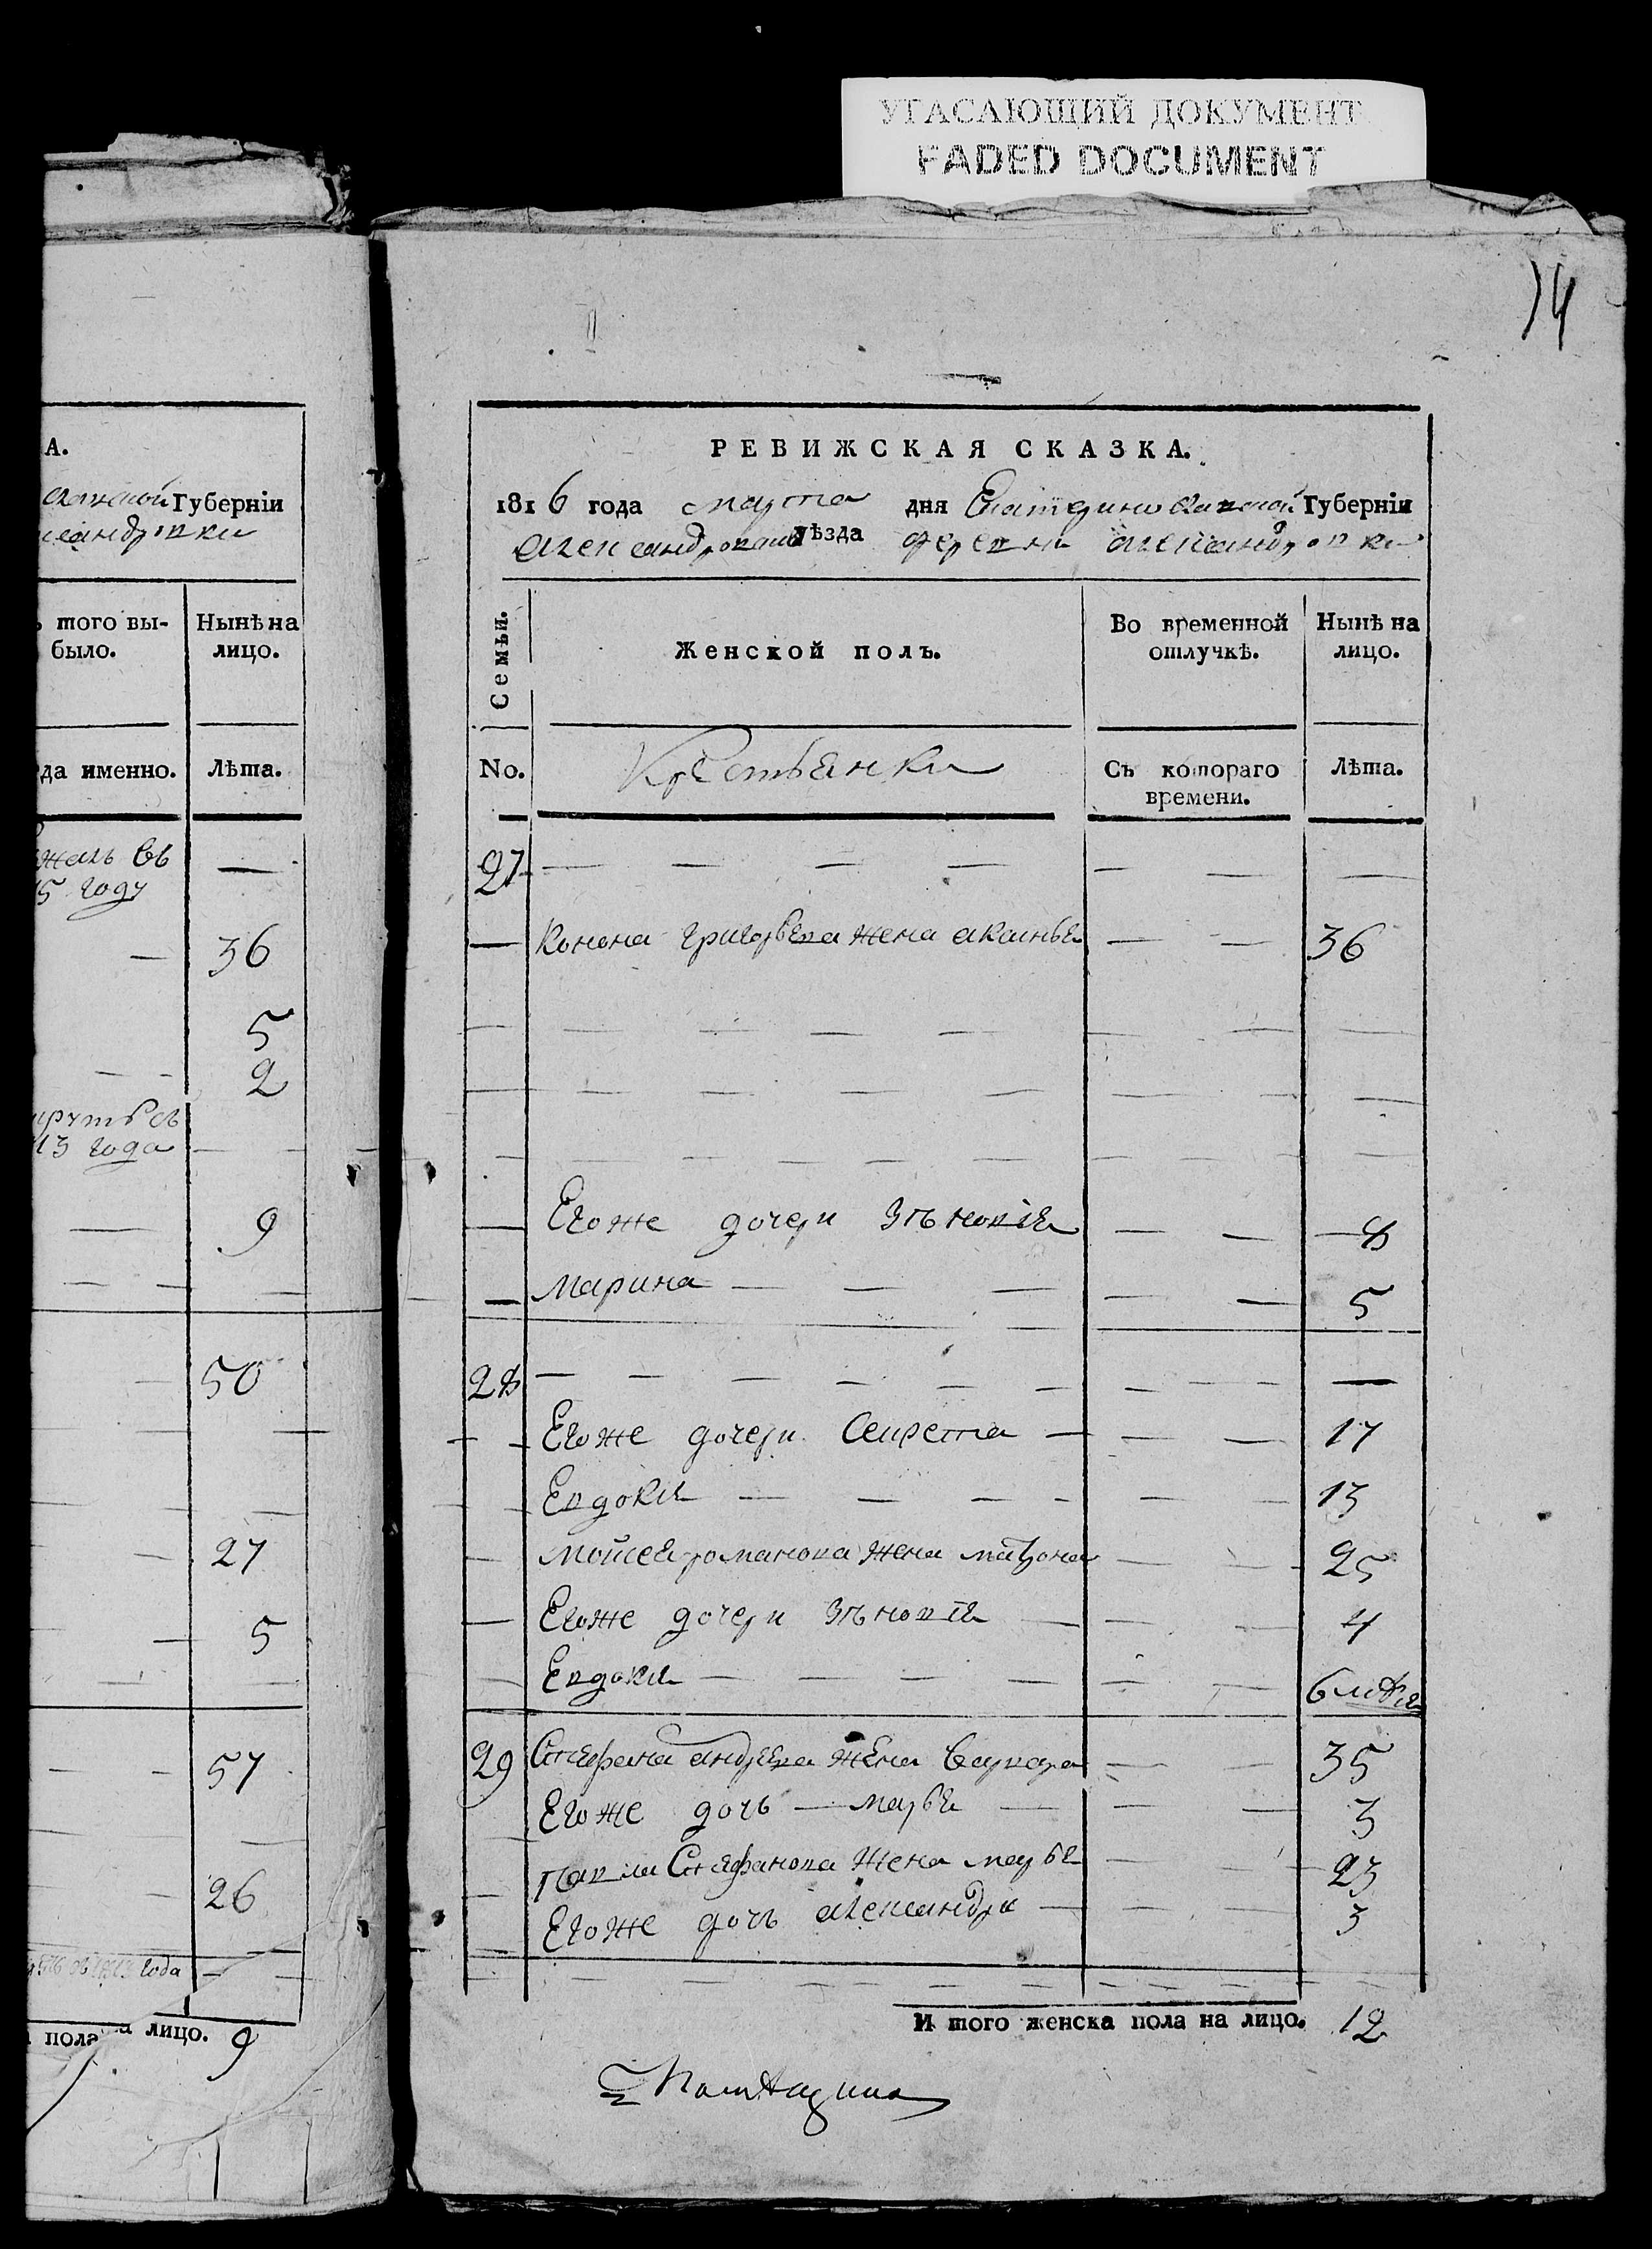 УГАСАЮЩИЙ ДОКУМЕНТ
FADED DOCUMENT
14
А.
Губерніи
того вы-
было.
Нынѣ на
лицо.
да именно.
Лѣта.
въ
15 году
—
36
5
2
13 года
9
50
27
5
57
26
года
пола на лицо. 9
РЕВИЖСКАЯ СКАЗКА.
1816 года марта дня Екатеринославской Губерніи
Александровскаго уѣзда деревни Александровки
Семьи.
Женской полъ.
Во временной
отлучкѣ.
Нынѣ на
лицо.
No.
Крестьянки
Съ котораго
времени.
Лѣта.
27 — — — — — — —
— Конона григорьева жена — — 36
Егоже дочери Зѣновія — — 8
— Марина — — — — — 5
28 — — — — — — — — —
Егоже дочери — — — 17
Евдокия — — — — — 13
— Мойсея романова жена матрона — — 25
— Егоже дочери Зѣновія — — — 4
Евдокия — — — — — — 6
29 Стефана андреева жена варвара — — 35
Егоже дочь — марья — — — 3
— Павла Стефанова жена марья — — 23
Егоже дочь александра — — — 3
И того женска пола на лицо. 12